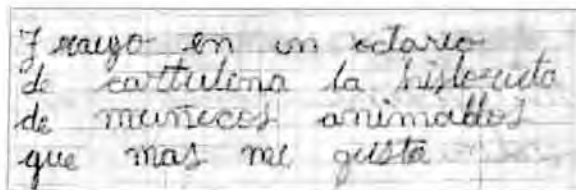 Traigo en un octavo
de cartulina la historieta
de muñecos animados
que mas me gusta